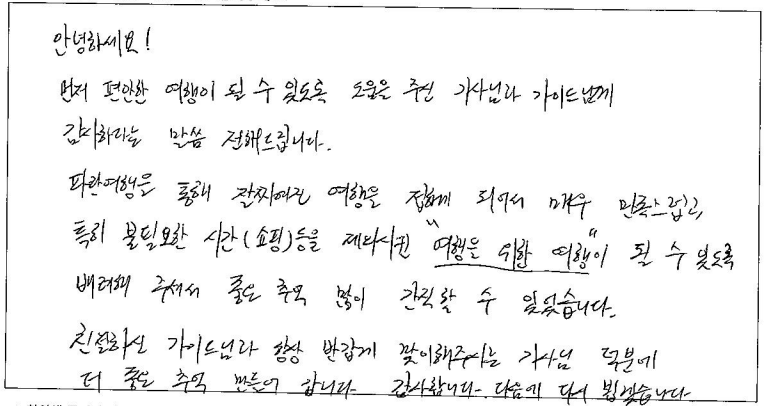 안녕하세요!
먼저 편안한 여행이 될 수 있도록 도움을 주신 기사님과 가이드님께
감사하다는 말씀 전해드립니다.
파란여행을 통해 잘짜여진 여행을 접하게 되어서 매우 만족스럽고,
특히 불필요한 시간(쇼핑)등을 제외시킨 "여행을 위한 여행"이 될 수 있도록
배려해 주셔서 좋은 추억 많이 간직할 수 있었습니다.
친절하신 가이드님과 항상 반갑게 맞이해주시는 기사님 덕분에
더 좋은 추억 만들어 갑니다. 감사합니다. 다음에 다시 뵙겠습니다